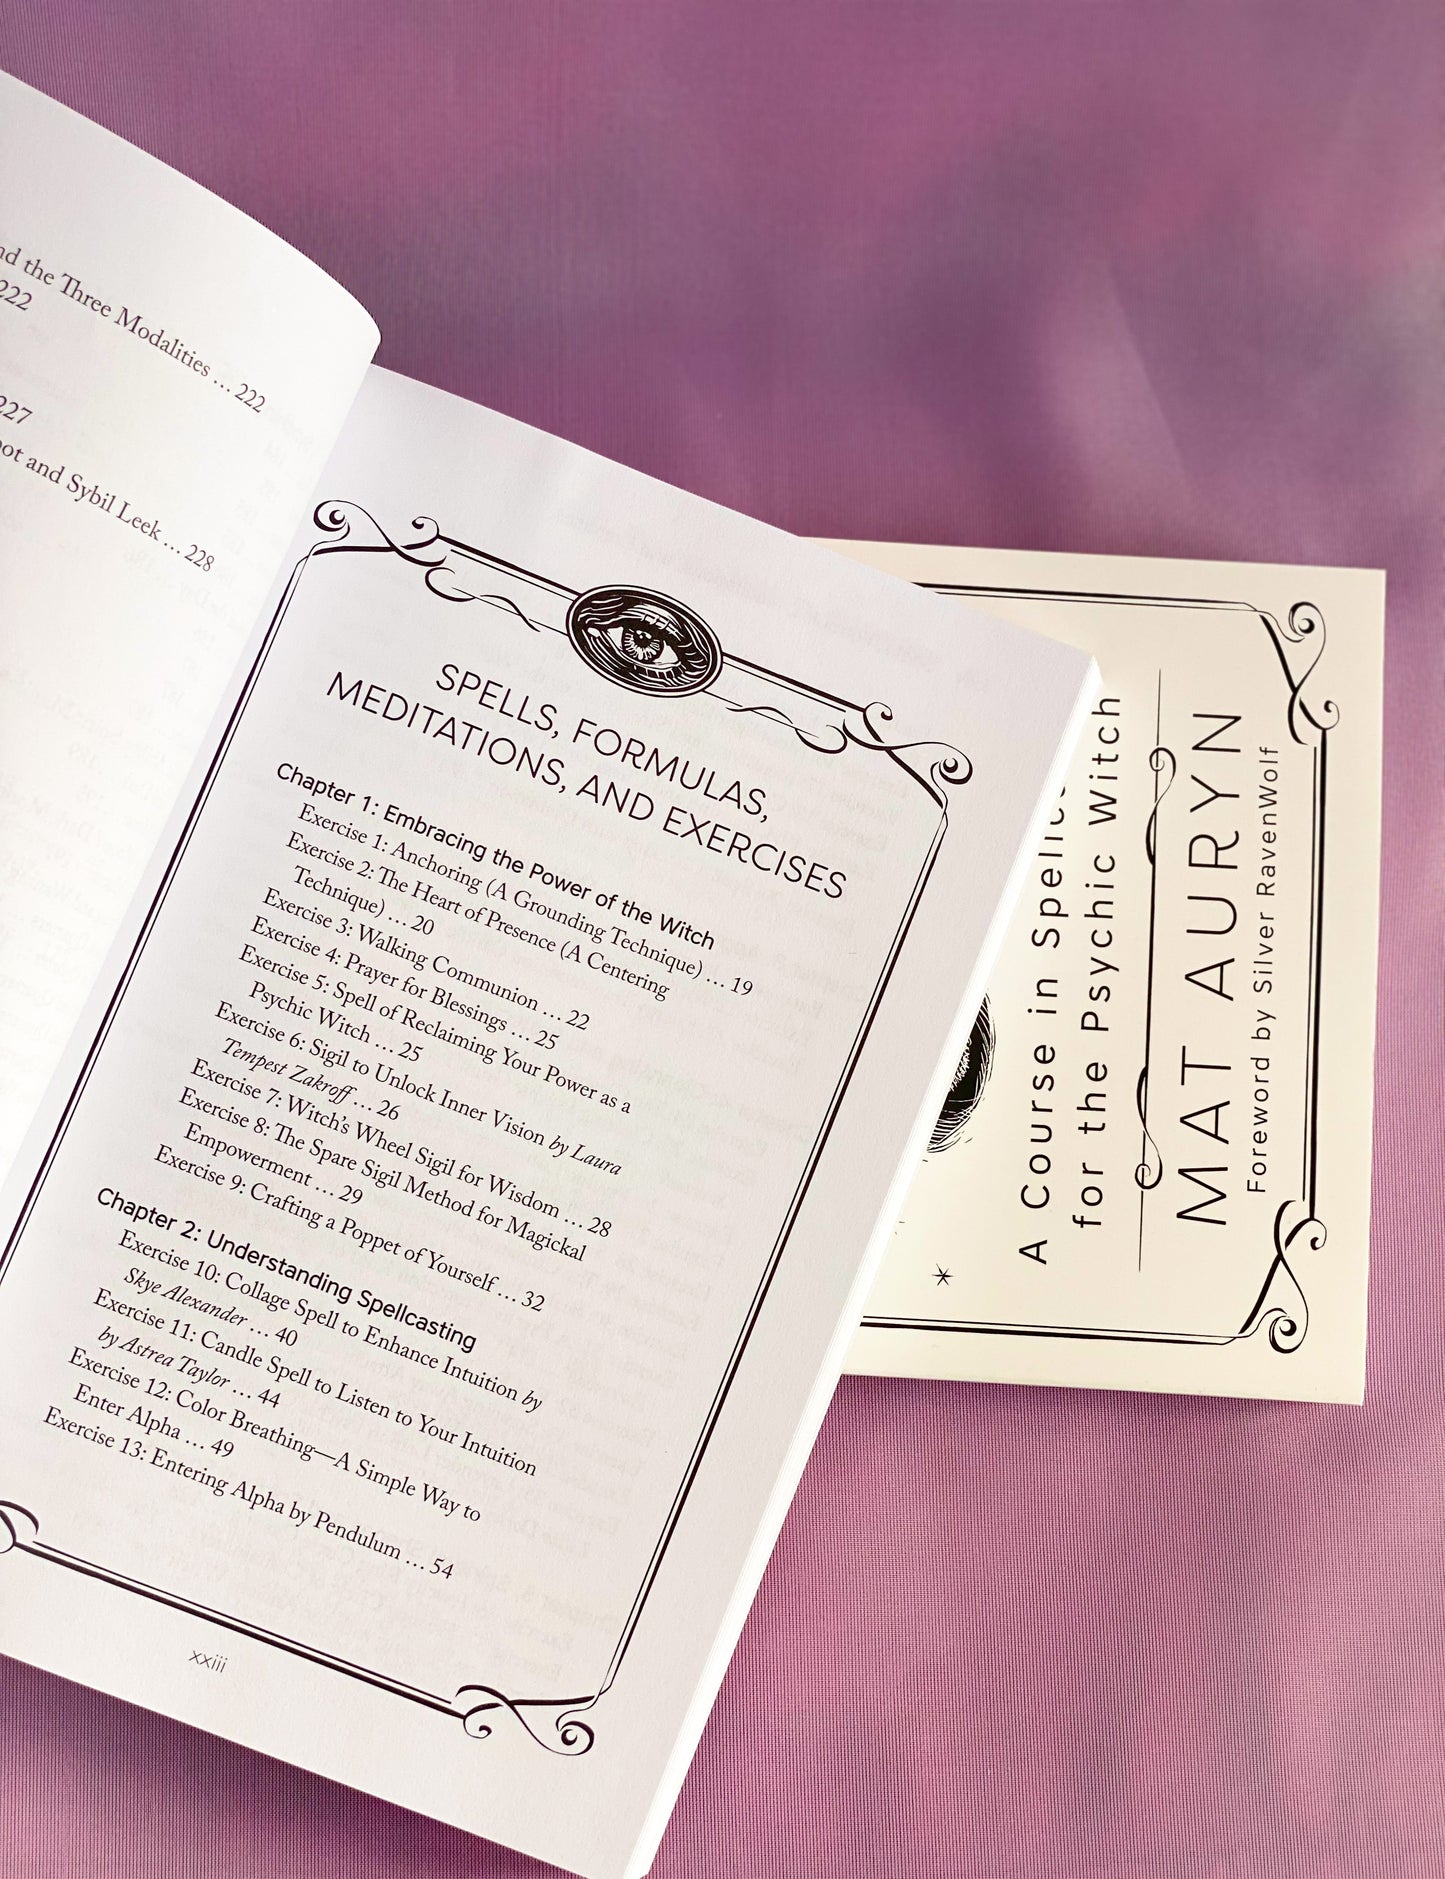 nd the Three Modalities ... 222
222
227
and Sybil Leek ... 228
SPELLS, FORMULAS,
MEDITATIONS, AND EXERCISES
Chapter 1: Embracing the Power of the Witch
Exercise 1: Anchoring (A Grounding Technique) ... 19
Exercise 2: The Heart of Presence (A Centering
Technique) ... 20
Exercise 3: Walking Communion ... 22
Exercise 4: Prayer for Blessings ... 25
Exercise 5: Spell of Reclaiming Your Power as a
Psychic Witch ... 25
Exercise 6: Sigil to Unlock Inner Vision by Laura
Tempest Zakroff ... 26
Exercise 7: Witch's Wheel Sigil for Wisdom ... 28
Exercise 8: The Spare Sigil Method for Magickal
Empowerment ... 29
Exercise 9: Crafting a Poppet of Yourself ... 32
Chapter 2: Understanding Spellcasting
Exercise 10: Collage Spell to Enhance Intuition by
Skye Alexander ... 40
Exercise 11: Candle Spell to Listen to Your Intuition
by Astrea Taylor ... 44
Exercise 12: Color Breathing—A Simple Way to
Enter Alpha ... 49
Exercise 13: Entering Alpha by Pendulum ... 54
xxiii
A Course in Spellc
for the Psychic Witch
MAT AURYN
Foreword by Silver RavenWolf